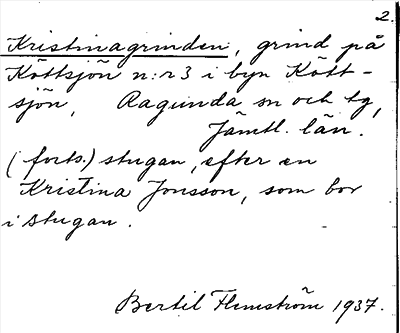 2.
Kristinagrinden, grind på
Köttsjön n:r 3 i byn Kött-
sjön, Ragunda sn och tg,
Jämtl. län.
(forts.) stugan, efter en
Kristina Jonsson, som bor
i stugan.
Bertil Flemström 1937.